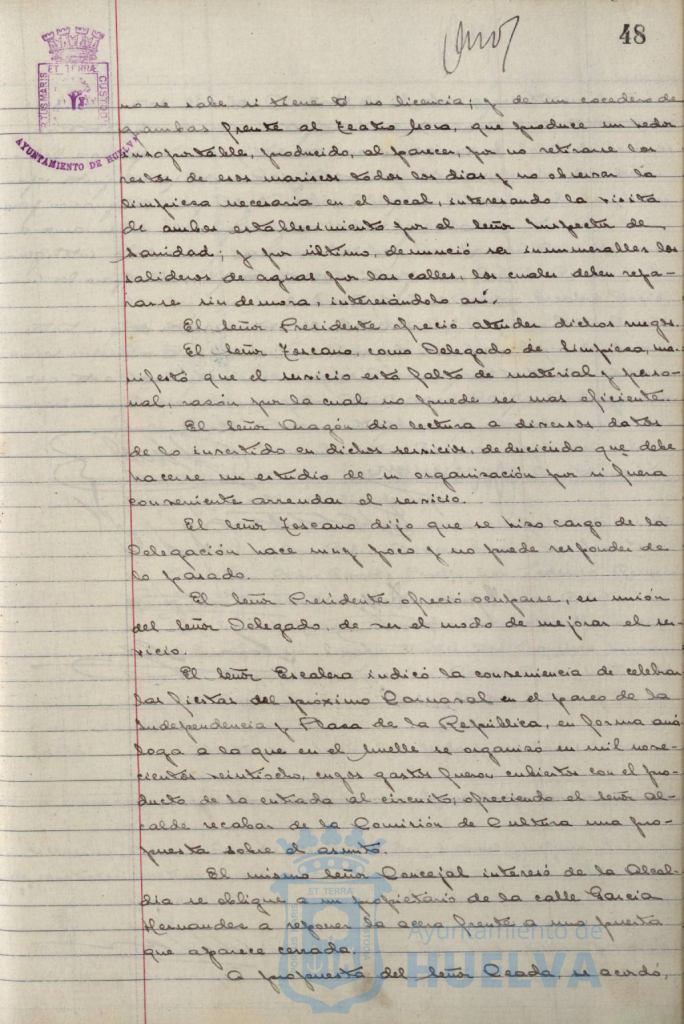 48
ET TERRA
PORTUS MARIS
CUSTODIA
AYUNTAMIENTO DE HUELVA
no se sabe si tiene o no licencia; y de un cocedero de
gambas frente al Teatro Mora, que produce un hedor
insoportable, producido, al parecer, por no retirarse los
restos de esos mariscos todos los dias y no observar la
limpieza necesaria en el local, interesando la visita
de ambos establecimiento por el Señor Inspector de
Sanidad; y por último, denunció ser innumerables los
salideros de aguas por las calles, los cuales deben repa-
rarse sin demora, interesándolo así.
El Señor Presidente ofreció atender dichos ruegos.
El Señor Toscano, como Delegado de Limpieza, ma-
nifestó que el servicio está falto de material y perso-
nal, razón por la cual no puede ser mas eficiente.
El Señor Aragón dio lectura a diversos datos
de lo invertido en dichos servicios, deduciendo que debe
hacerse un estudio de su organización por si fuera
conveniente arrendar el servicio.
El Señor Toscano dijo que se hizo cargo de la
Delegación hace muy poco y no puede responder de
lo pasado.
El Señor Presidente ofreció ocuparse, en unión
del Señor Delegado, de ver el modo de mejorar el ser-
vicio.
El Señor Escalera indicó la conveniencia de celebrar
las fiestas del próximo Carnaval en el paseo de la
Independencia y Plaza de la República, en forma aná-
loga a la que en el Muelle se organizó en mil nove-
cientos veintiocho, cuyos gastos fueron cubiertos con el pro-
ducto de la entrada al circuito, ofreciendo el Señor Al-
calde recabar de la Comisión de Cultura una pro-
puesta sobre el asunto.
El mismo Señor Concejal interesó de la Alcal-
día se obligue a un propietario de la calle García
Hernandez a reponer la acera frente a una puerta
que aparece cerrada.
A propuesta del Señor Ceada, se acordó,
Ayuntamiento de
HUELVA